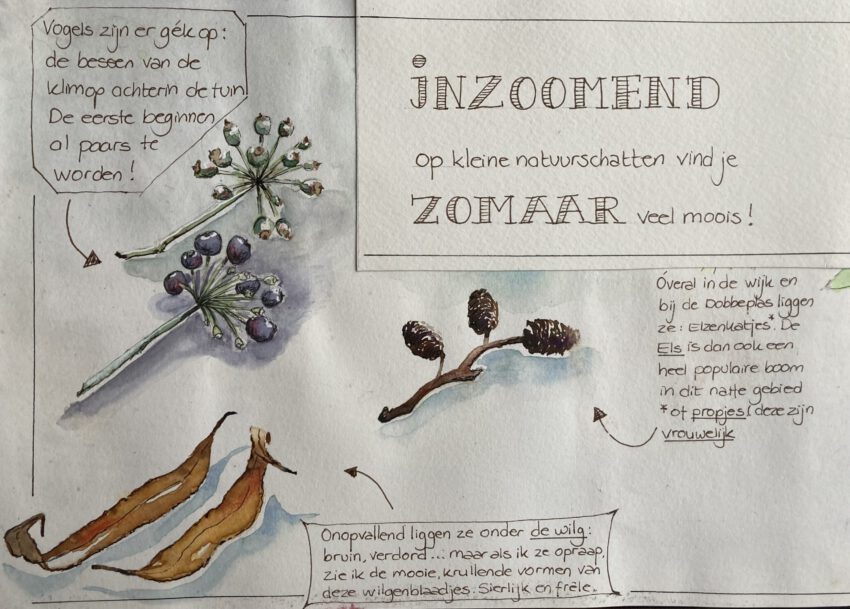 Vogels zijn er gék op:
de bessen van de
klimop achterin de tuin
De eerste beginnen
al paars te
worden!
iNZOOMEND
op kleine natuurschatten vind je
ZOMAAR veel moois!
Óveral in de wijk en
bij de Dobbeplas liggen
ze: Elzenkatjes*. De
Els is dan ook een
heel populaire boom
in dit natte gebied
* of propjes (deze zijn
vrouwelijk
Onopvallend liggen ze onder de wilg:
bruin, verdord...: maar als ik ze opraap,
zie ik de mooie, krullende vormen van
deze wilgenblaadjes. Sierlijk en frêle.